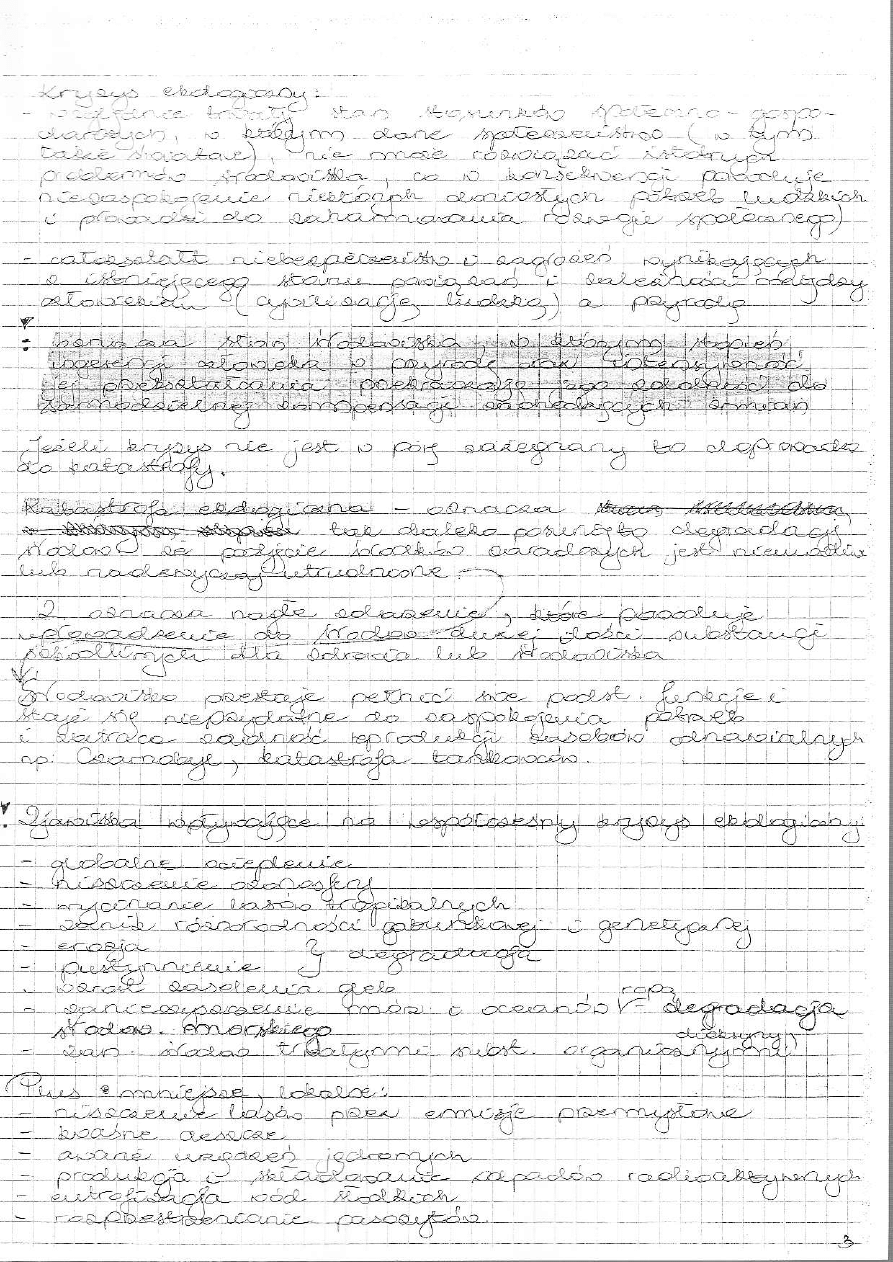 Kryzys ekologiczny:
- względnie trwały stan stosunków społeczno-gospo-
darczych, w którym dane społeczeństwo (w tym
także światowe), nie może rozwiązać istotnych
problemów środowiska, co w konsekwencji powoduje
niezaspokojenie niektórych doniosłych potrzeb ludzkich
i prowadzi do zahamowania rozwoju społecznego)
- całokształt niebezpieczeństw i zagrożeń wynikających
z istniejącego stanu powiązań i zależności między
człowiekiem (cywilizacją ludzką) a przyrodą
- stan środowiska w którym stopień
ingerencji człowieka w przyrodę oraz intensywność
jej przekształcania przekraczają jego zdolności do
samodzielnej kompensacji zachodzących zmian
Jeżeli kryzys nie jest w porę zażegnany to doprowadza
do katastrofy.
Katastrofa ekologiczna - oznacza
tak daleko posunięto degradację
środow że podjęcie środków zaradczych jest niemożliwe
lub nadzwyczaj utrudnione
2 oznacza nagłe zdarzenie, które powoduje
wprowadzenie do środow dużej ilości substancji
szkodliwych dla zdrowia lub środowiska
Środowisko przestaje pełnić swe podst. funkcje i
staje się nieprzydatne do zaspokojenia potrzeb
i zatraca zdolność reprodukcji zasobów odnawialnych
np. Czarnobyl, katastrofa tankowców.
Zjawiska wpływające na współczesny kryzys ekologiczny
- globalne ocieplenie
- niszczenie ozonosfery
- wycinanie lasów tropikalnych
- zanik różnorodności gatunkowej i genetycznej
- erozja
- pustynnienie } degradacja
- wzrost zasolenia gleb
- zanieczyszczenie mórz i oceanów ropą - degradacja
środow. morskiego
- zan. środow trwałymi subst. organicznymi dioksyny
Plus mniejsze, lokalne:
- niszczenie lasów przez emisje przemysłowe
- kwaśne deszcze
- awarie urządzeń jądrowych
- produkcja i składowanie odpadów radioaktywnych
- eutrofizacja wód śródlich
- rozprzestrzenianie pasożytów
3